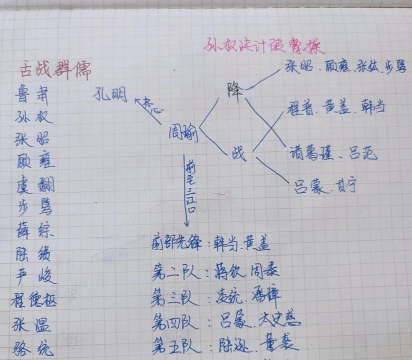 孙权决计破曹操
舌战群儒
鲁肃
孙权
张昭
顾雍
虞翻
步骘
薛综
陆绩
严峻
程德枢
张温
骆统
孔明
忠心
周瑜
降
战
张昭、顾雍、张纮、步骘
程普、黄盖、韩当
诸葛瑾、吕范
吕蒙、甘宁
前至三江口
前部先锋：韩当、黄盖
第二队：蒋钦、周泰
第三队：凌统、潘璋
第四队：吕蒙、太史慈
第五队：陆逊、董袭